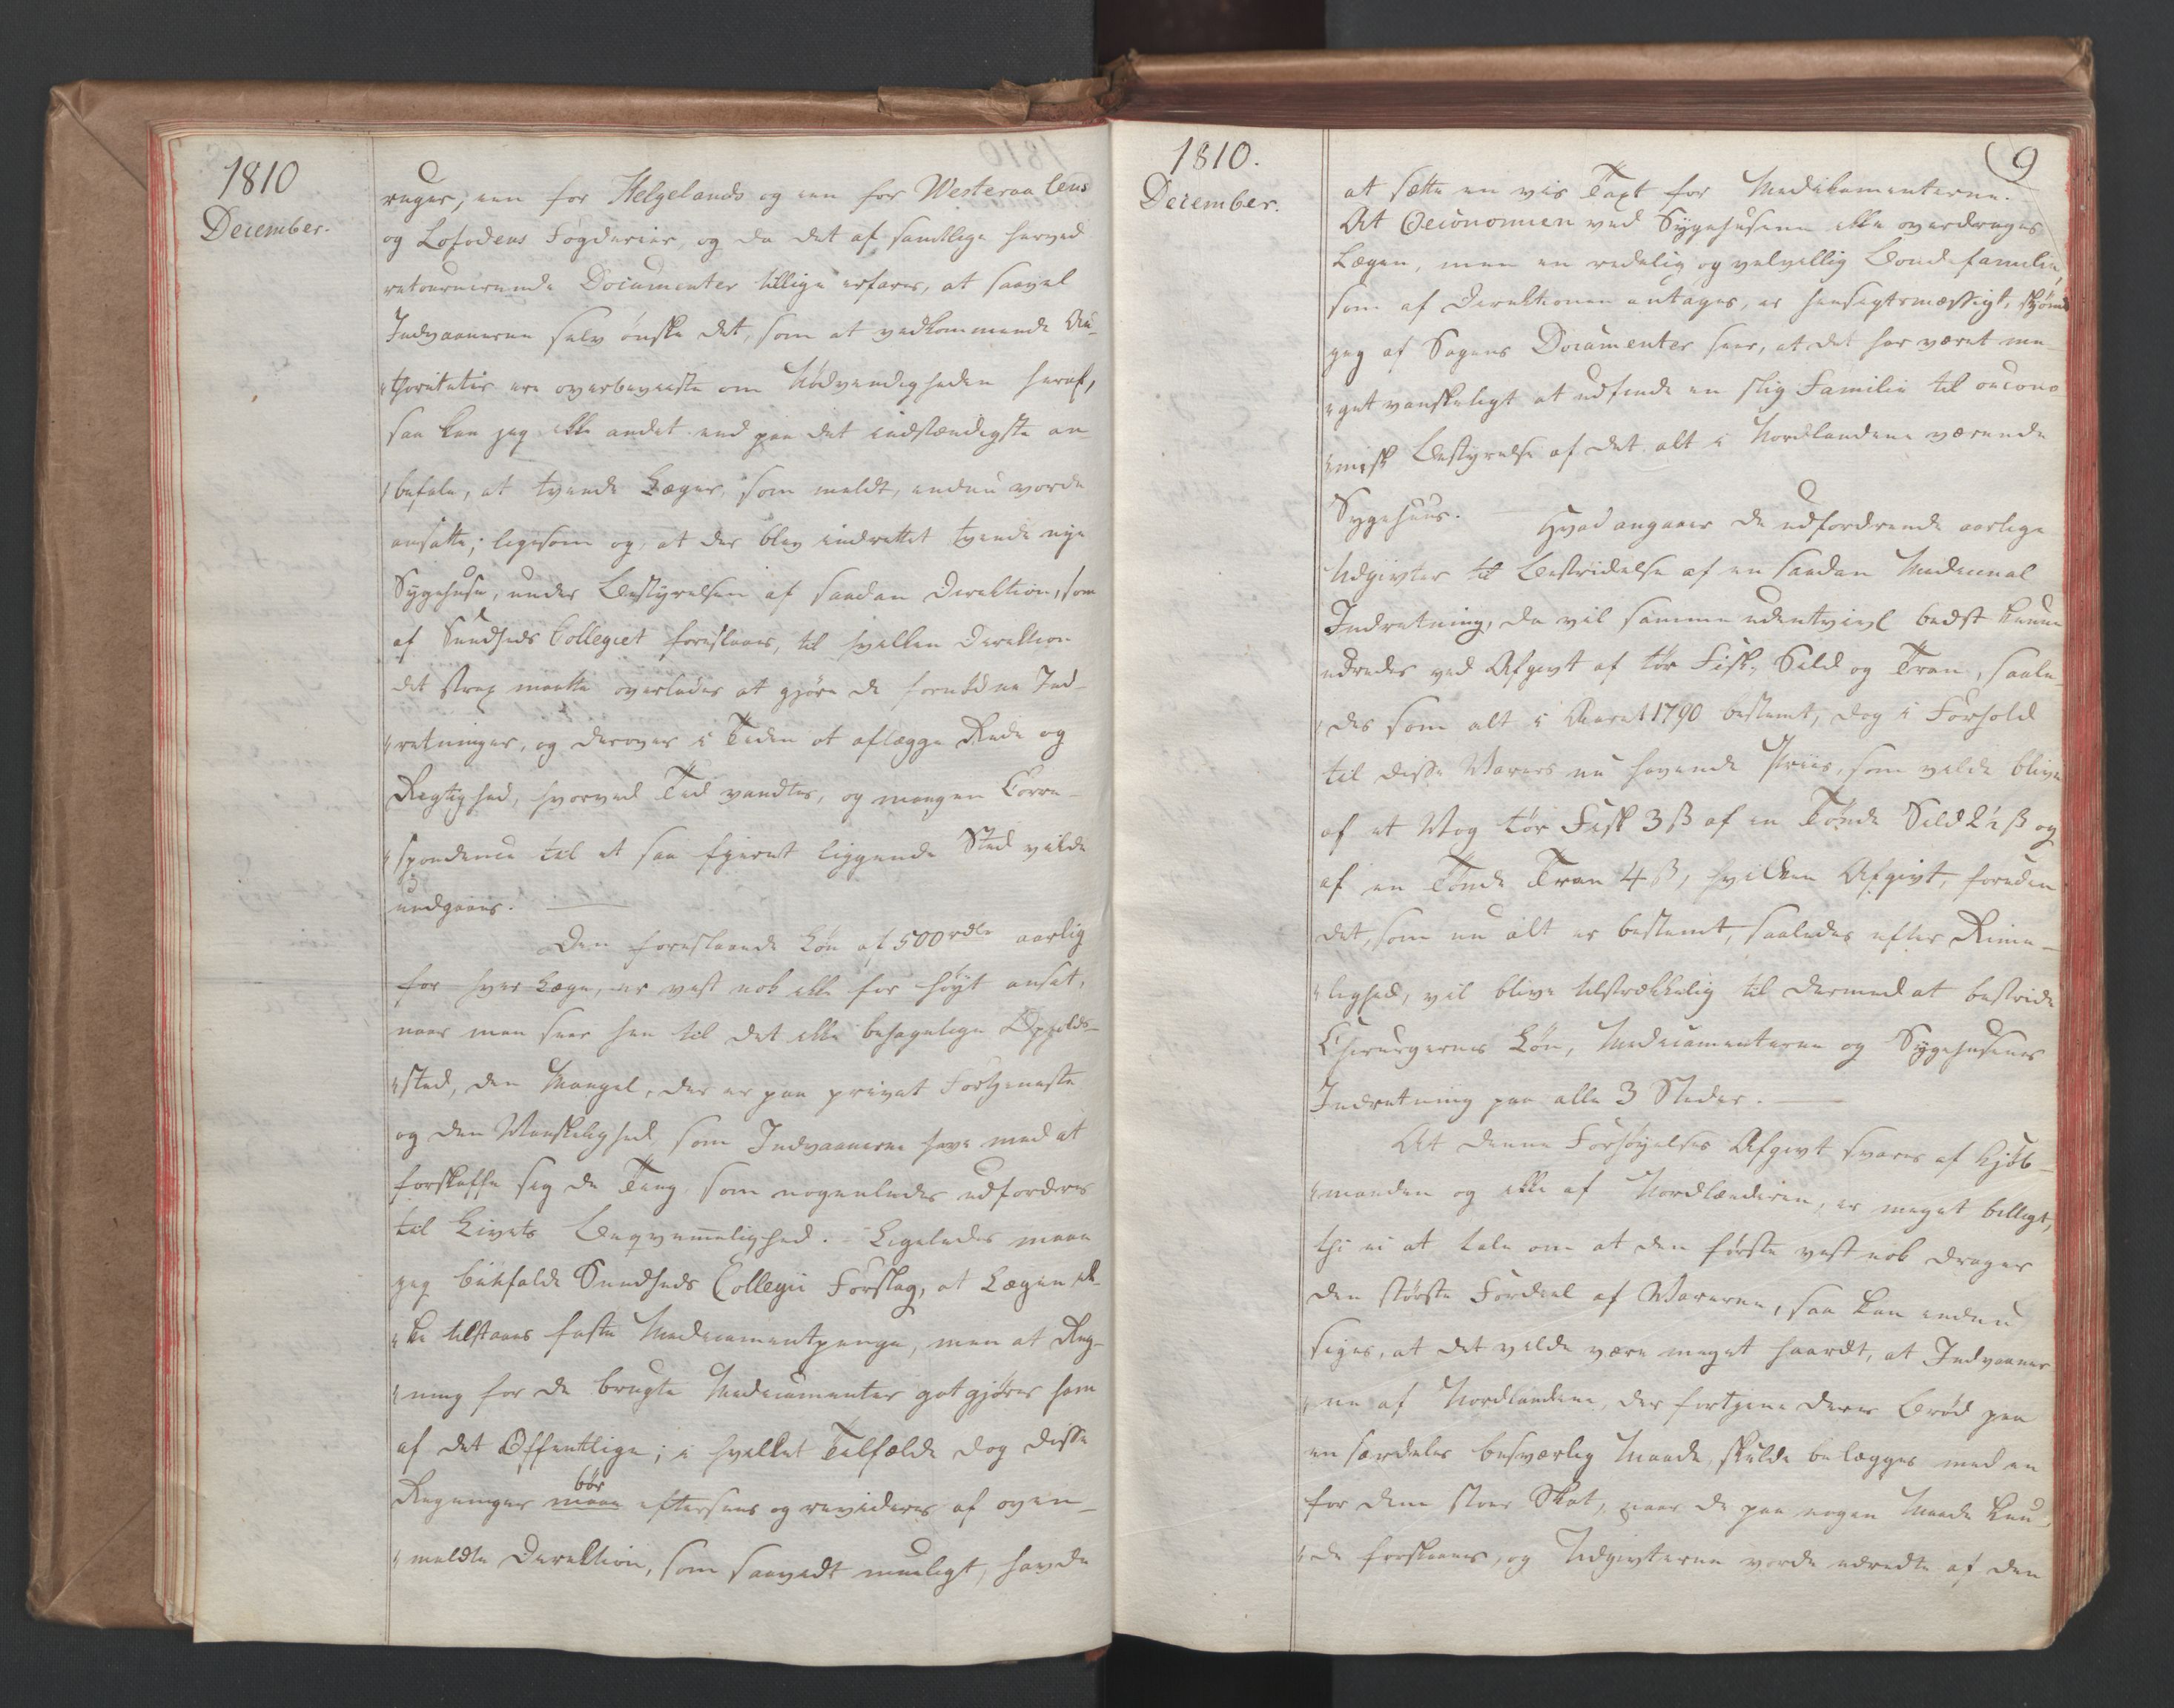 1810
December.
ruger; een for Helgelands og een for Westeraalens
og Lofodens Fogderier, og da det af samtlige herved
retournerende Documenter tillige erfares, at saavel
Indvaanerne selv ønske det, som at vedkommende Au-
thoriteter ere overbeviiste om Nødvendigheden heraf,
saa kan jeg ikke andet end paa det indstændigste an-
befale, at tvende Læger, som meldt, endnu vorde
ansatte; ligesom og, at der blev indrettet tvende nye
Sygehuse, under Bestyrelsen af saadan Direktion, som
af Sundheds Collegiet foreslaaes, til hvilken Direktion
det strax maatte overlades at gjøre de fornødne Ind-
retninger, og derover i Tiden at aflægge Rede og
Rigtighed, hvorved Tid vandtes, og megen Corre-
spondence til et saa fjernt liggende Sted vilde
undgaaes. —
Den foreslaaede Løn af 500 rdlr aarlig
for hver Læge, er vist nok ikke for høyt ansat,
naar man seer hen til det ikke behagelige Opholds-
sted, den Mangel, der er paa privat Fortjeneste
og den Vanskelighed, som Indvaanerne have med at
forskaffe sig de Ting, som nogenledes udfordres
til Livets Beqvemmelighed. - Ligeledes maae
jeg biefalde Sundheds Collegii Forslag, at Lægen ik-
ke tilstaaes faste Medicamentpenge, men at Reg-
ning for de brugte Medicamenter godtgjøres ham
af det Offentlige; i hvilket Tilfælde dog disse
Regninger maae bør eftersees og revideres af oven-
meldte Direktion, som saavidt mueligt, havde
1810.
December.
9
at sætte en vis Taxt for Medikamenterne.
At Oeconomien ved Sygehusene ikke overdrages
Lægen, men en redelig og velvillig Bondefamilie,
som af Direktionen antages, er hensigtsmæssigt, skjøndt
jeg af Sagens Documenter seer, at det har været me-
get vanskeligt at udfinde en slig Familie til oecono-
misk Bestyrelse af det alt i Nordlandene værende
Sygehuus. — Hvad angaaer de udfordrende aarlige
Udgivter til Bestridelse af en saadan Medicinal
Indretning, da vil samme udentvivl bedst kunne
udredes ved Afgivt af tør Fisk, Sild og Tran, saale-
des som alt i Aaret 1790 bestemt, dog i Forhold
til disse Varers nu havende Priis, som vilde blive
af et Vog tør Fisk 3 ß af en Tønde Sild 2½ ß og
af en Tønde Tran 4 ß, hvilken Afgivt, foruden
det, som nu alt er bestemt, saaledes efter Rime-
lighed, vil blive tilstrækkelig til dermed at bestride
Chirurgernes Løn, Medicamenterne og Sygehusenes
Indretning paa alle 3 Steder. —
At denne Forhøyelses Afgivt svares af Kjøb-
manden og ikke af Nordlænderen, er meget billigt,
thi ei at tale om at den første vist nok drager
den største Fordeel af Varerne, saa kan endnu
siges, at det vilde være meget haardt, at Indvaaner-
ne af Nordlandene, der fortjene deres Brød paa
en særdeles besværlig Maade, skulde belægges med en
for dem stoer Skat, naar de paa nogen Maade kun-
de forskaanes, og Udgivterne vorde udredte af den